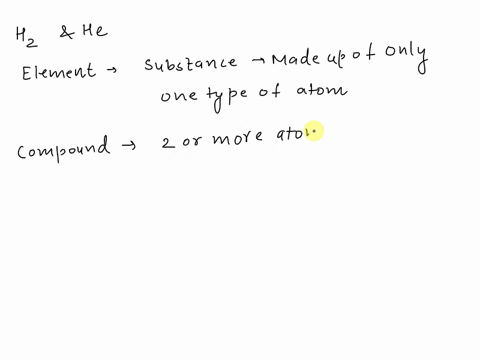 H₂ & He
Element → Substance → Made up of only
one type of atom
Compound → 2 or more ato